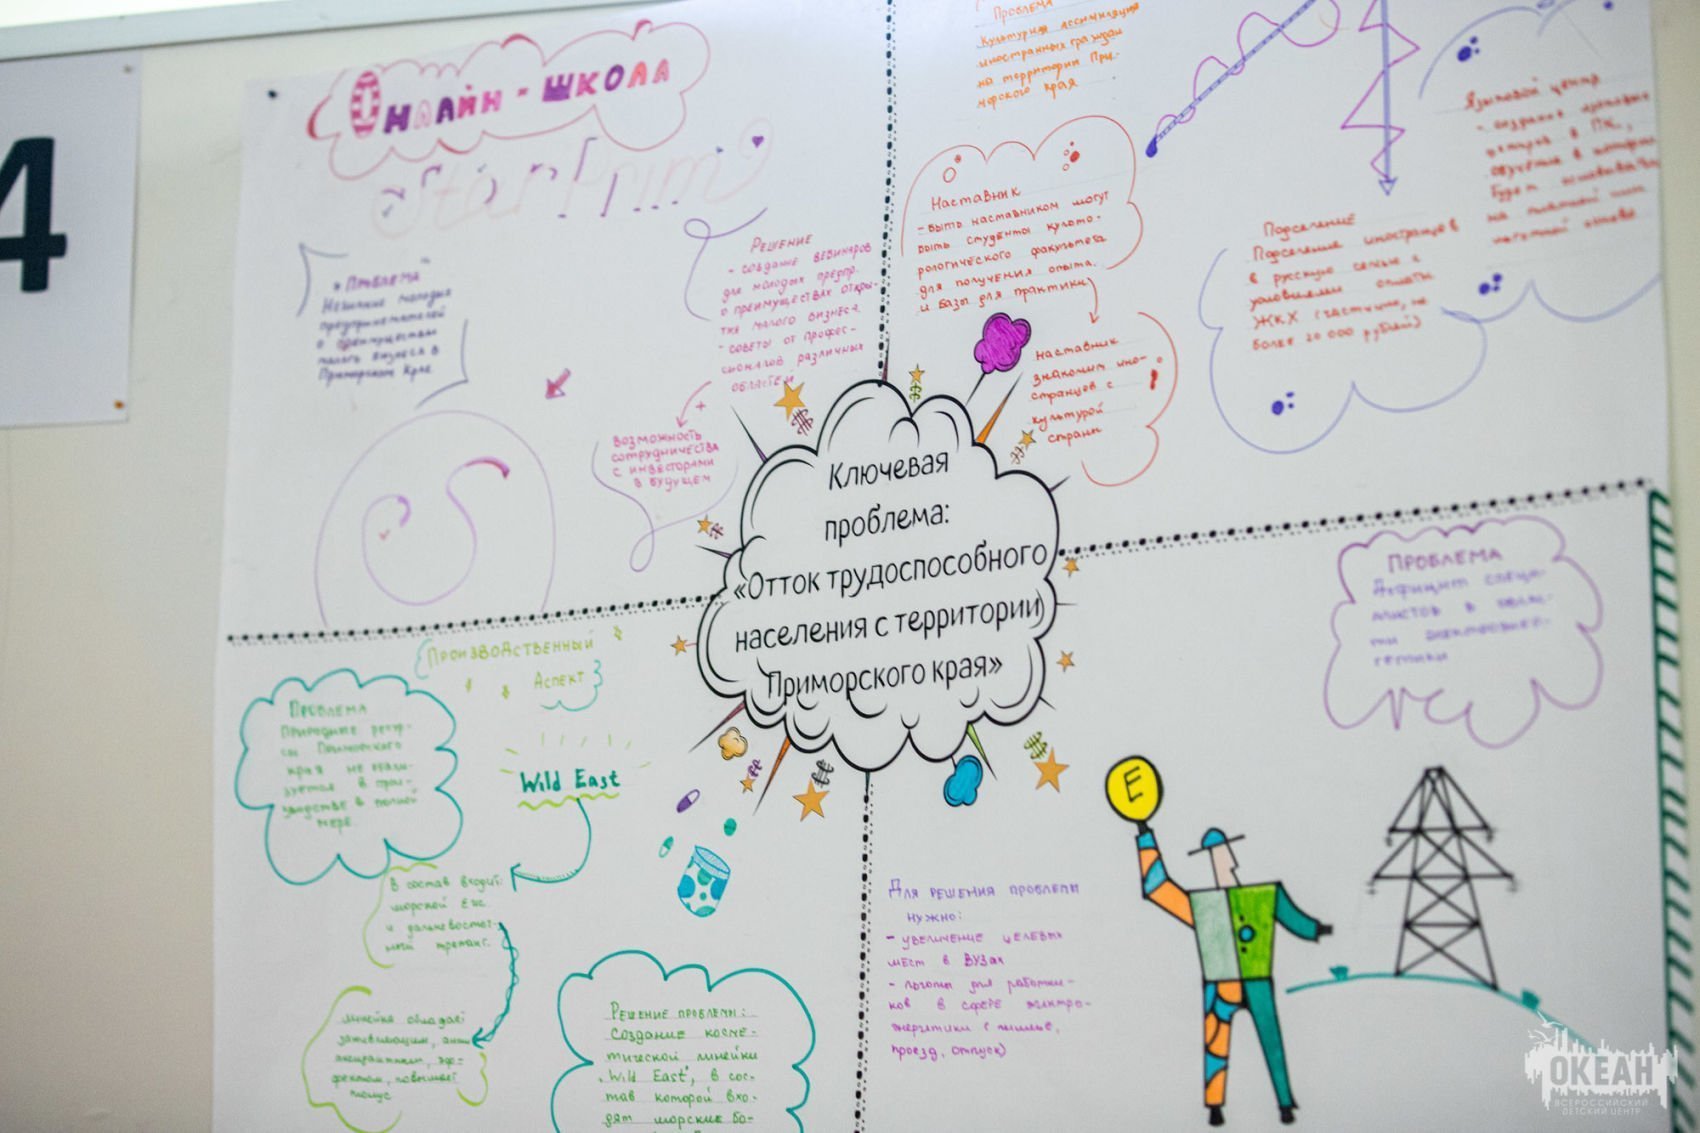 4
Онлайн - школа
StartPrim
"Проблема"
Незнание молодых
предпринимателей
о преимуществах
малого бизнеса в
Приморском крае
Решение
- создание вебинаров
для молодых предпр.
о преимуществах откры-
тия малого бизнеса.
- советы от профес-
сионалов различных
областей
+
возможность
сотрудничества
с инвесторами
в будущем
Проблема
Культурная ассимиляция
иностранных граждан
на территории При-
морского края
Наставник
- быть наставником могут
быть студенты культо-
рологического факультета
для получения опыта
и базы для практики
Наставник
знакомит ино-
странцев с
культурой
страны
Подселение
Подселение иностранцев
в русскую семью с
условиями оплаты
ЖКХ (частично, не
более 20 000 рублей)
Языковой центр
- создание языковых
центров в ПК,
на платной или
Ключевая
проблема:
«Отток трудоспособного
населения с территории
Приморского края»
Производственный
Аспект
Проблема
Природные ресур-
сы Приморского
края не реали-
зуются в прои-
зводстве в полной
мере.
Wild East
В состав входит:
морской ёж
и дальневосточ-
ный трепанг.
линейка обладает
эф-
фектом, повышает
тонус
Решение проблемы:
Создание косме-
тической линейки
"Wild East", в сос-
тав которой вхо-
дят морские бо-
Проблема
Дефицит специа-
листов в
Для решения проблемы
нужно:
- увеличение целевых
мест в ВУЗах
- льготы для работни-
ков в сфере электро-
энергетики (жильё,
проезд, отпуск)
E
ОКЕАН
ВСЕРОССИЙСКИЙ
ДЕТСКИЙ ЦЕНТР